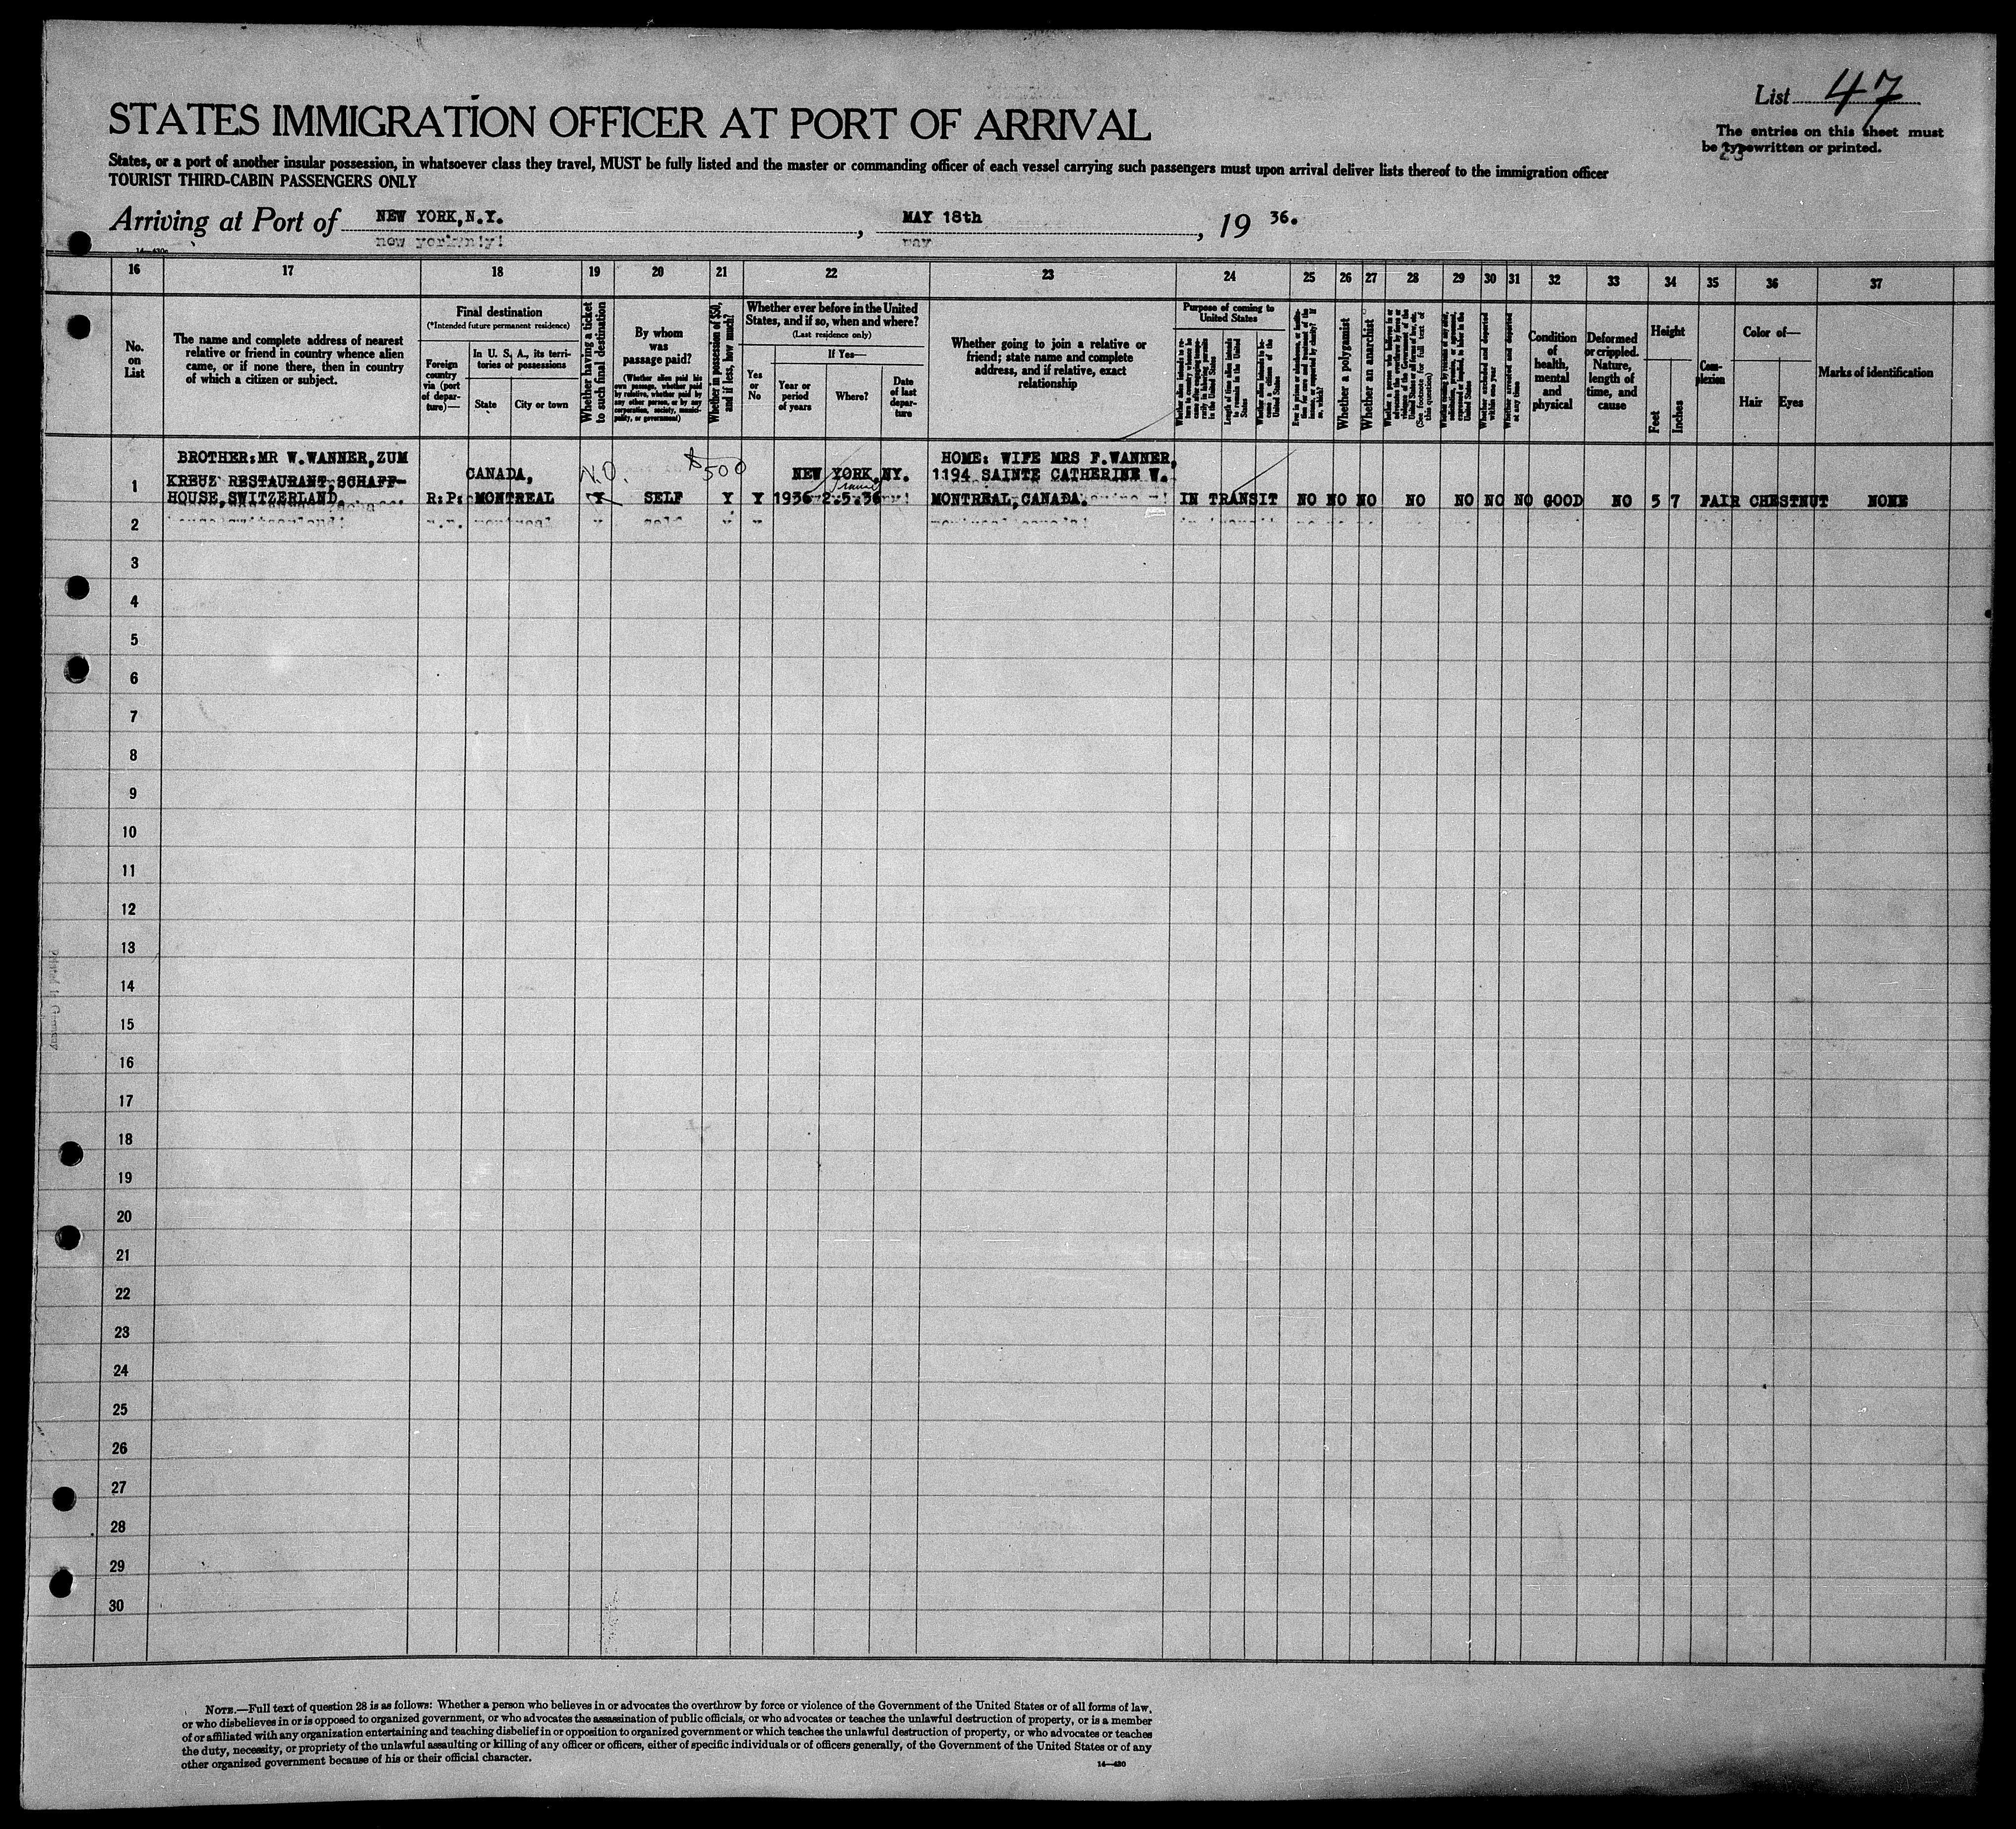 List 47
STATES IMMIGRATION OFFICER AT PORT OF ARRIVAL
The entries on this sheet must
be typewritten or printed.
States, or a port of another insular possession, in whatsoever class they travel, MUST be fully listed and the master or commanding officer of each vessel carrying such passengers must upon arrival deliver lists thereof to the immigration officer
TOURIST THIRD-CABIN PASSENGERS ONLY
Arriving at Port of NEW YORK,N.Y. , MAY 18th , 19 36.
16 17 18 19 20 21 22 23 24 25 26 27 28 29 30 31 32 33 34 35 36 37
No.
on
List
The name and complete address of nearest
relative or friend in country whence alien
came, or if none there, then in country
of which a citizen or subject.
Final destination
(*Intended future permanent residence)
Foreign
country
via (port
of depar-
ture)—
In U. S. A., its terri-
tories or possessions
State
City or town
Whether having a ticket
to such final destination
By whom
was
passage paid?
(Whether alien paid his
own passage, whether paid
by relative, whether paid by
any other person, or by any
corporation, society, munici-
pality, or government)
Whether in possession of $50,
and if less, how much?
Whether ever before in the United
States, and if so, when and where?
(Last residence only)
Yes
or
No
If Yes—
Year or
period
of years
Where?
Date
of last
depar-
ture
Whether going to join a relative or
friend; state name and complete
address, and if relative, exact
relationship
Purpose of coming to
United States
Length of time alien intends
to remain in the United
States
Whether alien intends to be-
come a citizen of the
United States
Whether a polygamist
Whether an anarchist
(See footnote for full text of
this question)
Whether arrested and deported
within one year
Whether arrested and deported
at any time
Condition
of
health,
mental
and
physical
Deformed
or crippled.
Nature,
length of
time, and
cause
Height
Feet
Inches
Com-
plexion
Color of—
Hair
Eyes
Marks of identification
BROTHER:MR W.WANNER,ZUM CANADA, N.O. $500 NEW YORK,NY. HOME: WIFE MRS F.WANNER,
1 KREUZ RESTAURANT,SCHAFF- 1194 SAINTE CATHERINE W.
HOUSE,SWITZERLAND. R:P: MONTREAL Y SELF Y Y 1936 2.5.36 MONTREAL,CANADA. IN TRANSIT NO NO NO NO NO NO NO GOOD NO 5 7 FAIR CHESTNUT NONE
2
3
4
5
6
7
8
9
10
11
12
13
14
15
16
17
18
19
20
21
22
23
24
25
26
27
28
29
30
NOTE.—Full text of question 28 is as follows: Whether a person who believes in or advocates the overthrow by force or violence of the Government of the United States or of all forms of law,
or who disbelieves in or is opposed to organized government, or who advocates the assassination of public officials, or who advocates or teaches the unlawful destruction of property, or is a member
of or affiliated with any organization entertaining and teaching disbelief in or opposition to organized government or which teaches the unlawful destruction of property, or who advocates or teaches
the duty, necessity, or propriety of the unlawful assaulting or killing of any officer or officers, either of specific individuals or of officers generally, of the Government of the United States or of any
other organized government because of his or their official character.
14—430